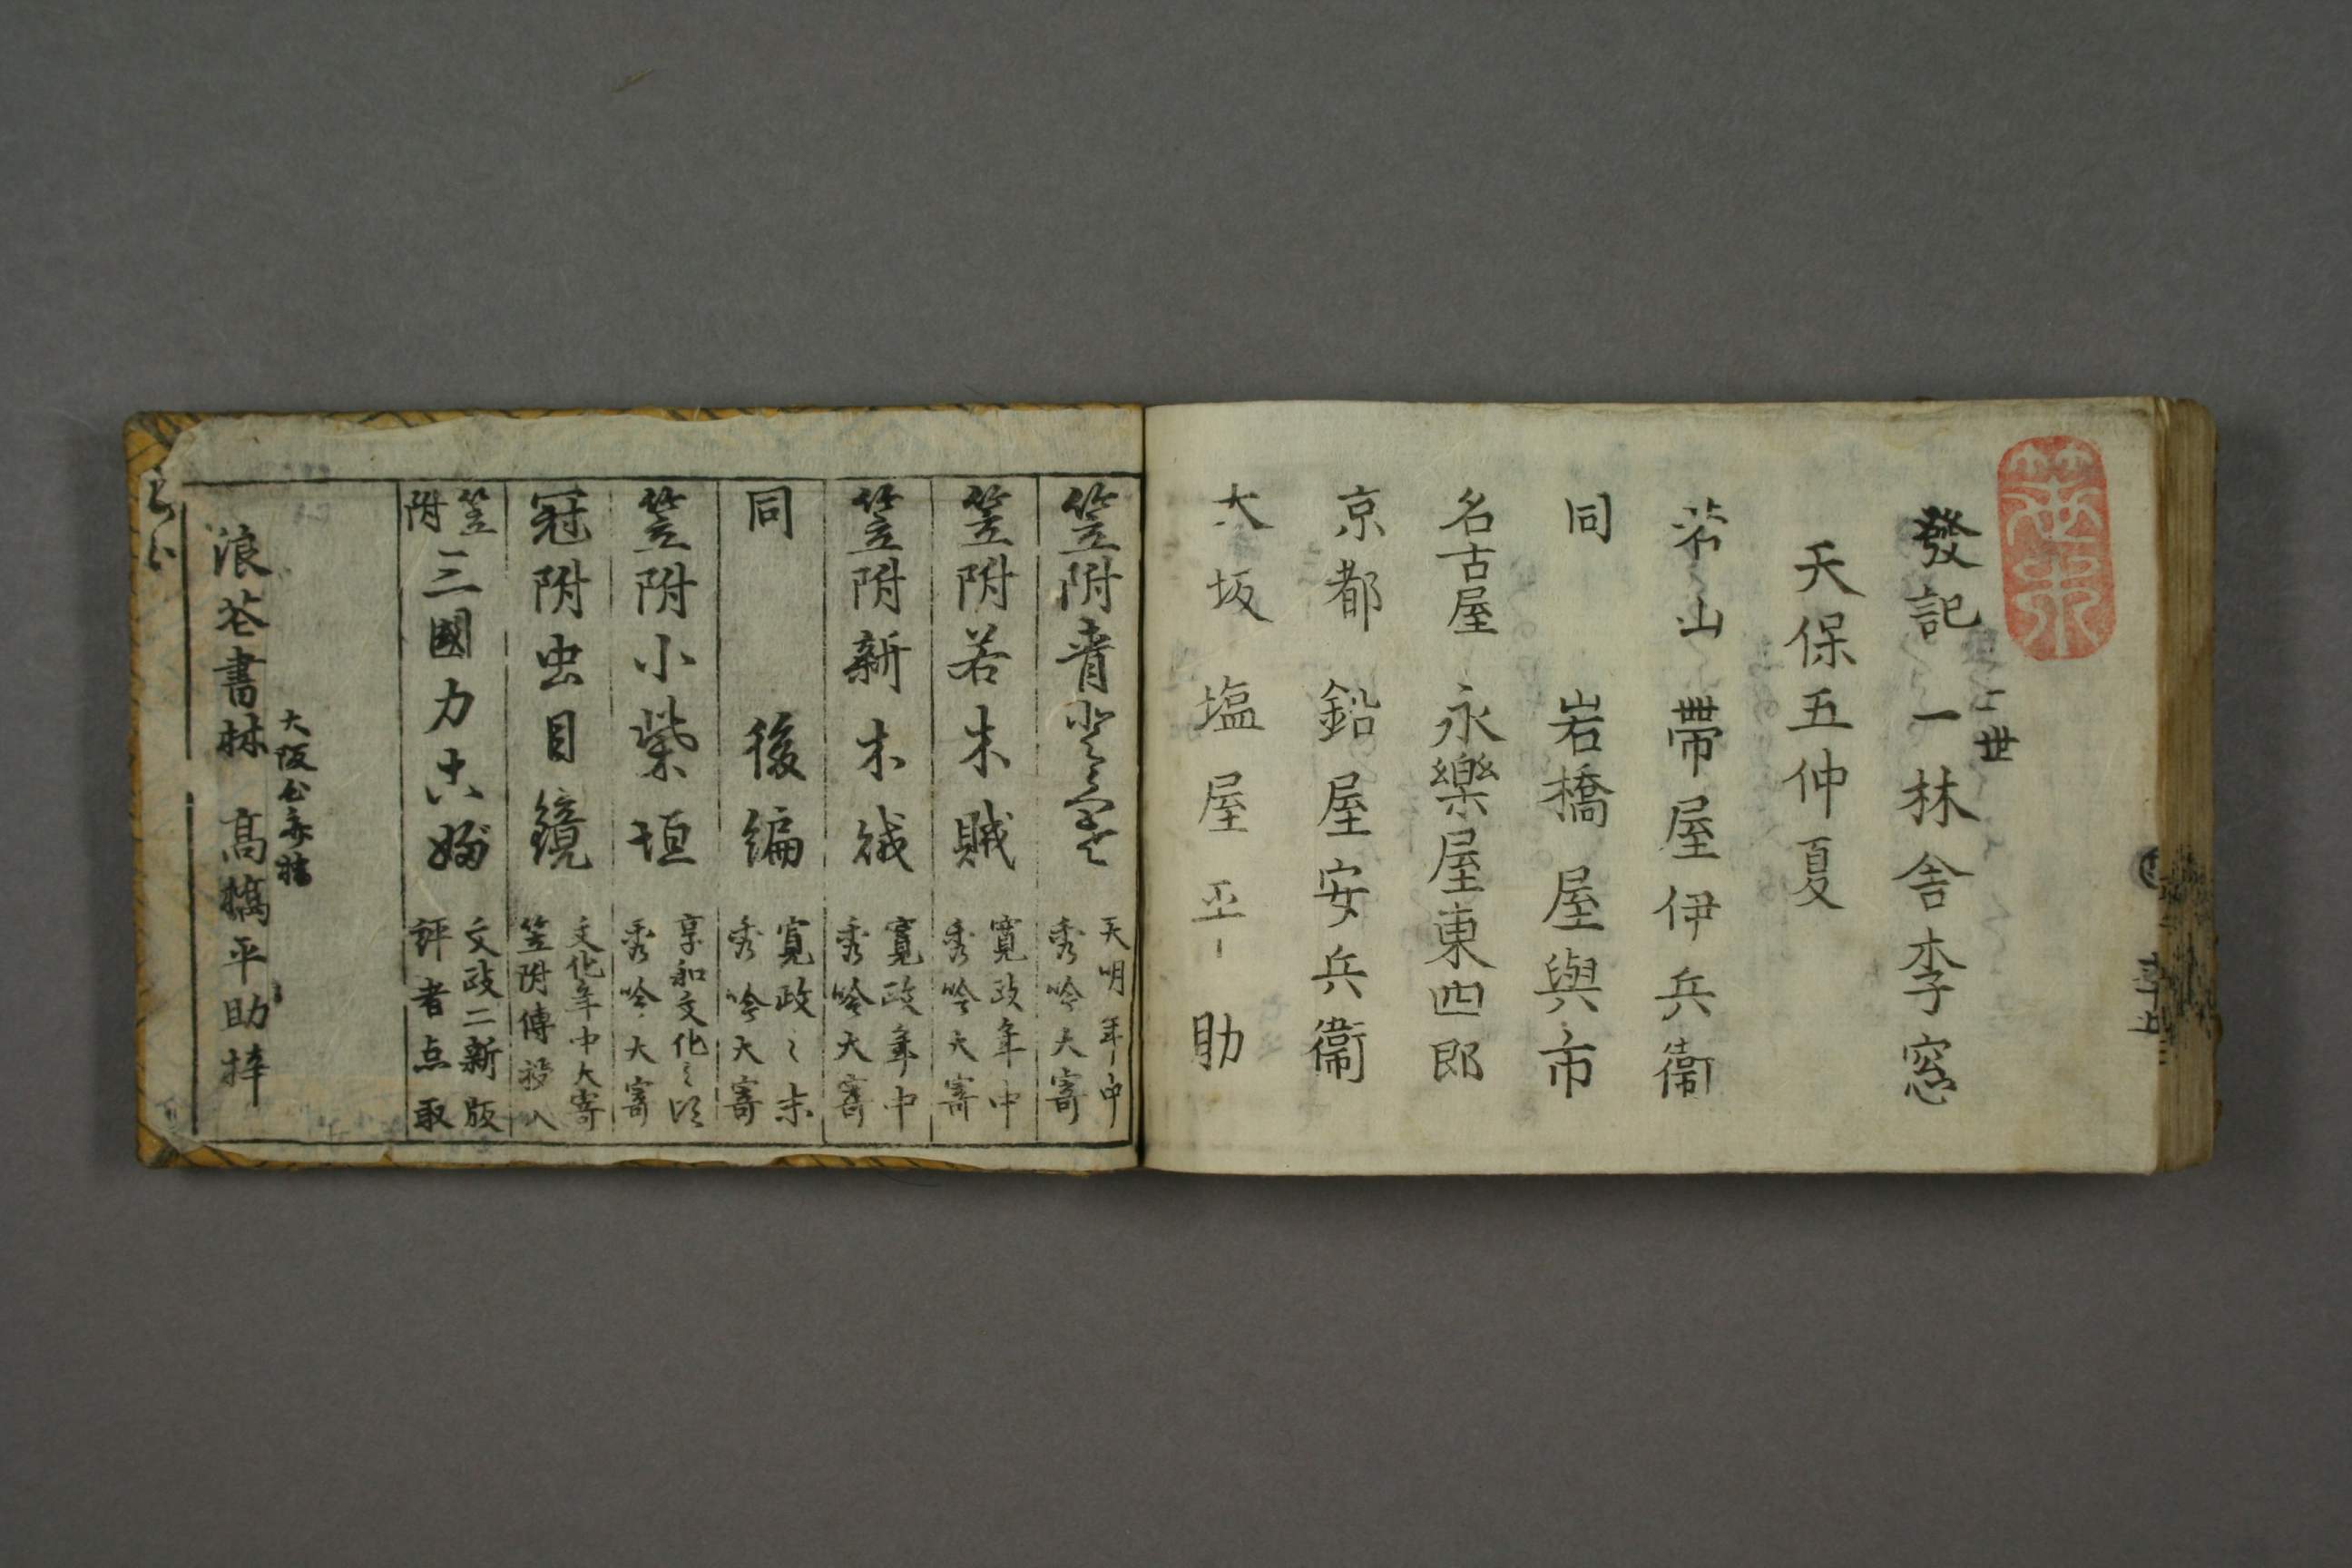 發記 二世 一林舎李窓
天保五仲夏
若山 帯屋伊兵衞
同 岩橋屋與市
名古屋 永樂屋東四郎
京都 鉛屋安兵衞
大坂 塩屋平助
笠附青 天明年中 秀吟大寄
笠附若木賊 寛政年中 秀吟大寄
笠附新木賊 寛政年中 秀吟大寄
同 後編 寛政之末 秀吟大寄
笠附小柴垣 享和文化之頃 秀吟大寄
冠附虫目鏡 文化年中大寄 笠附傳授入
笠附 三國力こぶ 文政二新版 評者点取
大阪
浪花書林 髙橋平助梓